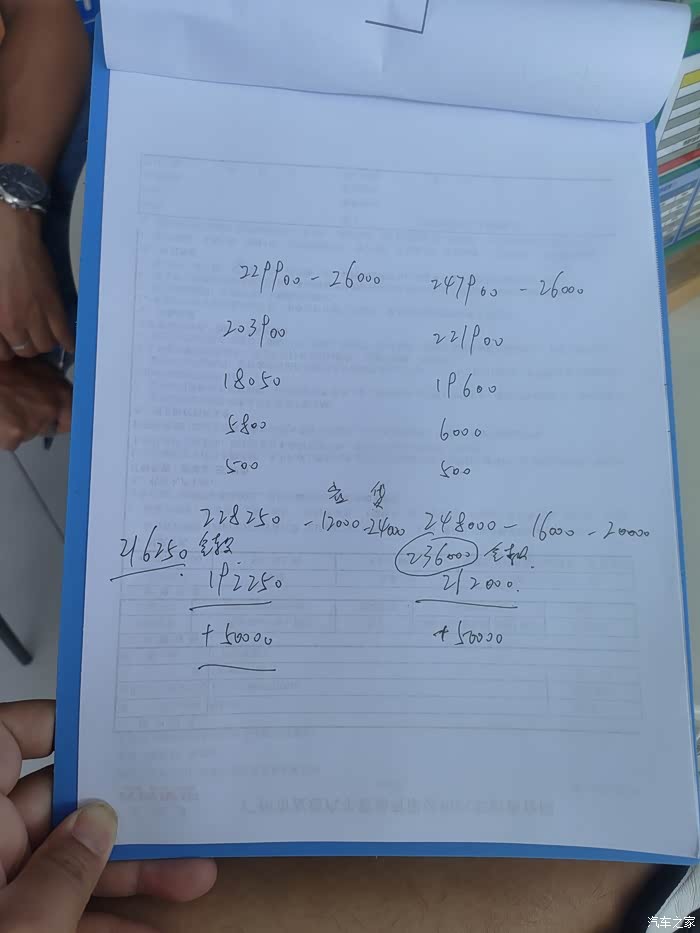 229900 - 26000
247900 - 26000
203900
221900
18050
19600
5800
6000
500
500
228250 - 12000 - 24000
248000 - 16000 - 20000
216250 全款
236000 全款
192250
212000
+50000
+50000
汽车之家